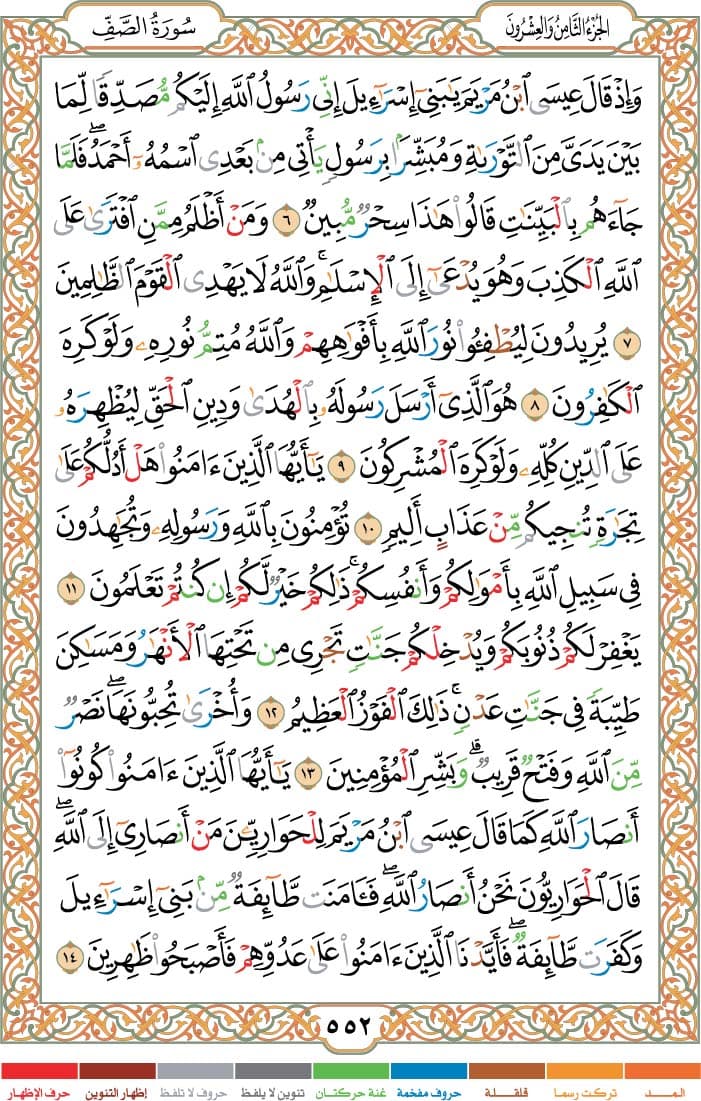 الجُزْءُ الثَّامِنُ وَالعِشْرُونَ
سُورَةُ الصَّفِّ
وَإِذْ قَالَ عِيسَى ٱبْنُ مَرْيَمَ يَٰبَنِىٓ إِسْرَٰٓءِيلَ إِنِّى رَسُولُ ٱللَّهِ إِلَيْكُم مُّصَدِّقًا لِّمَا
بَيْنَ يَدَىَّ مِنَ ٱلتَّوْرَىٰةِ وَمُبَشِّرًۢا بِرَسُولٍ يَأْتِى مِنۢ بَعْدِى ٱسْمُهُۥٓ أَحْمَدُ ۖ فَلَمَّا
جَآءَهُم بِٱلْبَيِّنَٰتِ قَالُوا۟ هَٰذَا سِحْرٌ مُّبِينٌ ٦ وَمَنْ أَظْلَمُ مِمَّنِ ٱفْتَرَىٰ عَلَى
ٱللَّهِ ٱلْكَذِبَ وَهُوَ يُدْعَىٰٓ إِلَى ٱلْإِسْلَٰمِ ۚ وَٱللَّهُ لَا يَهْدِى ٱلْقَوْمَ ٱلظَّٰلِمِينَ
٧ يُرِيدُونَ لِيُطْفِـُٔوا۟ نُورَ ٱللَّهِ بِأَفْوَٰهِهِمْ وَٱللَّهُ مُتِمُّ نُورِهِۦ وَلَوْ كَرِهَ
ٱلْكَٰفِرُونَ ٨ هُوَ ٱلَّذِىٓ أَرْسَلَ رَسُولَهُۥ بِٱلْهُدَىٰ وَدِينِ ٱلْحَقِّ لِيُظْهِرَهُۥ
عَلَى ٱلدِّينِ كُلِّهِۦ وَلَوْ كَرِهَ ٱلْمُشْرِكُونَ ٩ يَٰٓأَيُّهَا ٱلَّذِينَ ءَامَنُوا۟ هَلْ أَدُلُّكُمْ عَلَىٰ
تِجَٰرَةٍ تُنجِيكُم مِّنْ عَذَابٍ أَلِيمٍ ١٠ تُؤْمِنُونَ بِٱللَّهِ وَرَسُولِهِۦ وَتُجَٰهِدُونَ
فِى سَبِيلِ ٱللَّهِ بِأَمْوَٰلِكُمْ وَأَنفُسِكُمْ ۚ ذَٰلِكُمْ خَيْرٌ لَّكُمْ إِن كُنتُمْ تَعْلَمُونَ ١١
يَغْفِرْ لَكُمْ ذُنُوبَكُمْ وَيُدْخِلْكُمْ جَنَّٰتٍ تَجْرِى مِن تَحْتِهَا ٱلْأَنْهَٰرُ وَمَسَٰكِنَ
طَيِّبَةً فِى جَنَّٰتِ عَدْنٍ ۚ ذَٰلِكَ ٱلْفَوْزُ ٱلْعَظِيمُ ١٢ وَأُخْرَىٰ تُحِبُّونَهَا ۖ نَصْرٌ
مِّنَ ٱللَّهِ وَفَتْحٌ قَرِيبٌ ۗ وَبَشِّرِ ٱلْمُؤْمِنِينَ ١٣ يَٰٓأَيُّهَا ٱلَّذِينَ ءَامَنُوا۟ كُونُوٓا۟
أَنصَارَ ٱللَّهِ كَمَا قَالَ عِيسَى ٱبْنُ مَرْيَمَ لِلْحَوَارِيِّۦنَ مَنْ أَنصَارِىٓ إِلَى ٱللَّهِ ۖ
قَالَ ٱلْحَوَارِيُّونَ نَحْنُ أَنصَارُ ٱللَّهِ ۖ فَـَٔامَنَت طَّآئِفَةٌ مِّنۢ بَنِىٓ إِسْرَٰٓءِيلَ
وَكَفَرَت طَّآئِفَةٌ ۖ فَأَيَّدْنَا ٱلَّذِينَ ءَامَنُوا۟ عَلَىٰ عَدُوِّهِمْ فَأَصْبَحُوا۟ ظَٰهِرِينَ ١٤
٥٥٢
المــد تركت رسما قلقلة حروف مفخمة غنة حركتان تنوين لا يلفظ حروف لا تلفظ إظهار التنوين حرف الإظهار